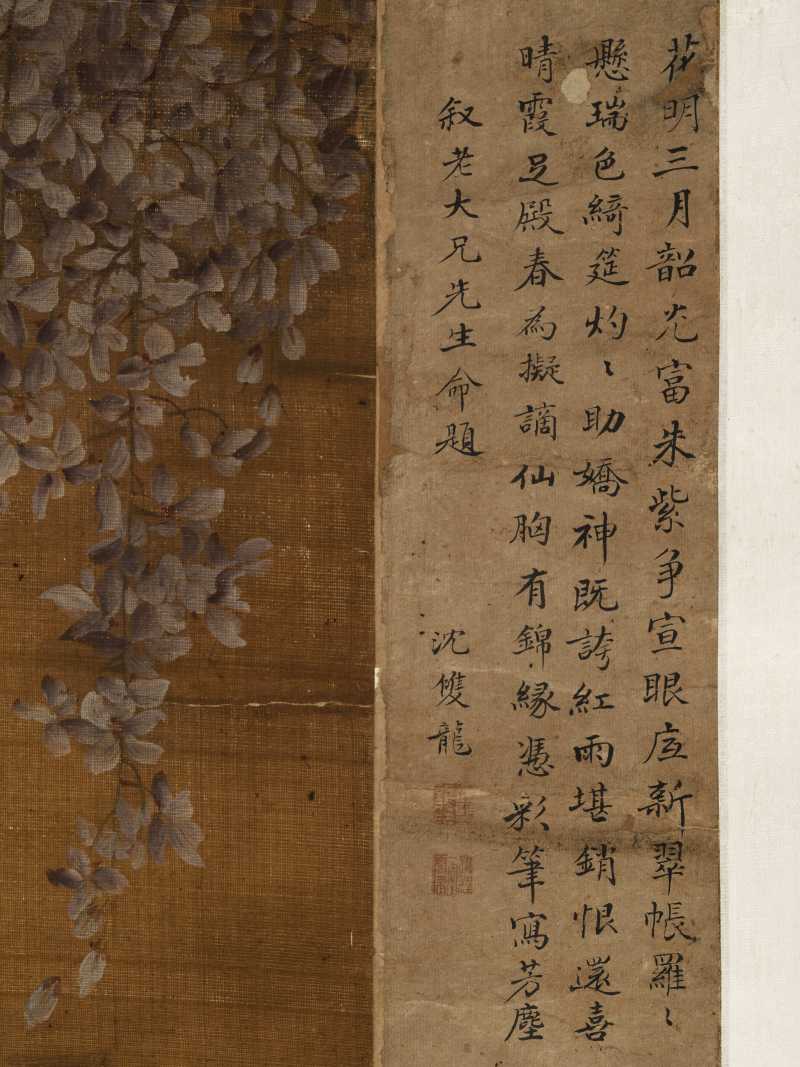 花明三月韶光富朱紫争宣眼底新翠帳羅〻
懸瑞色綺筵灼〻助嬌神既誇紅雨堪銷恨還喜
晴霞足殿春為擬謫仙胸有錦緣憑彩筆寫芳塵
叙老大兄先生命題
沈雙龍